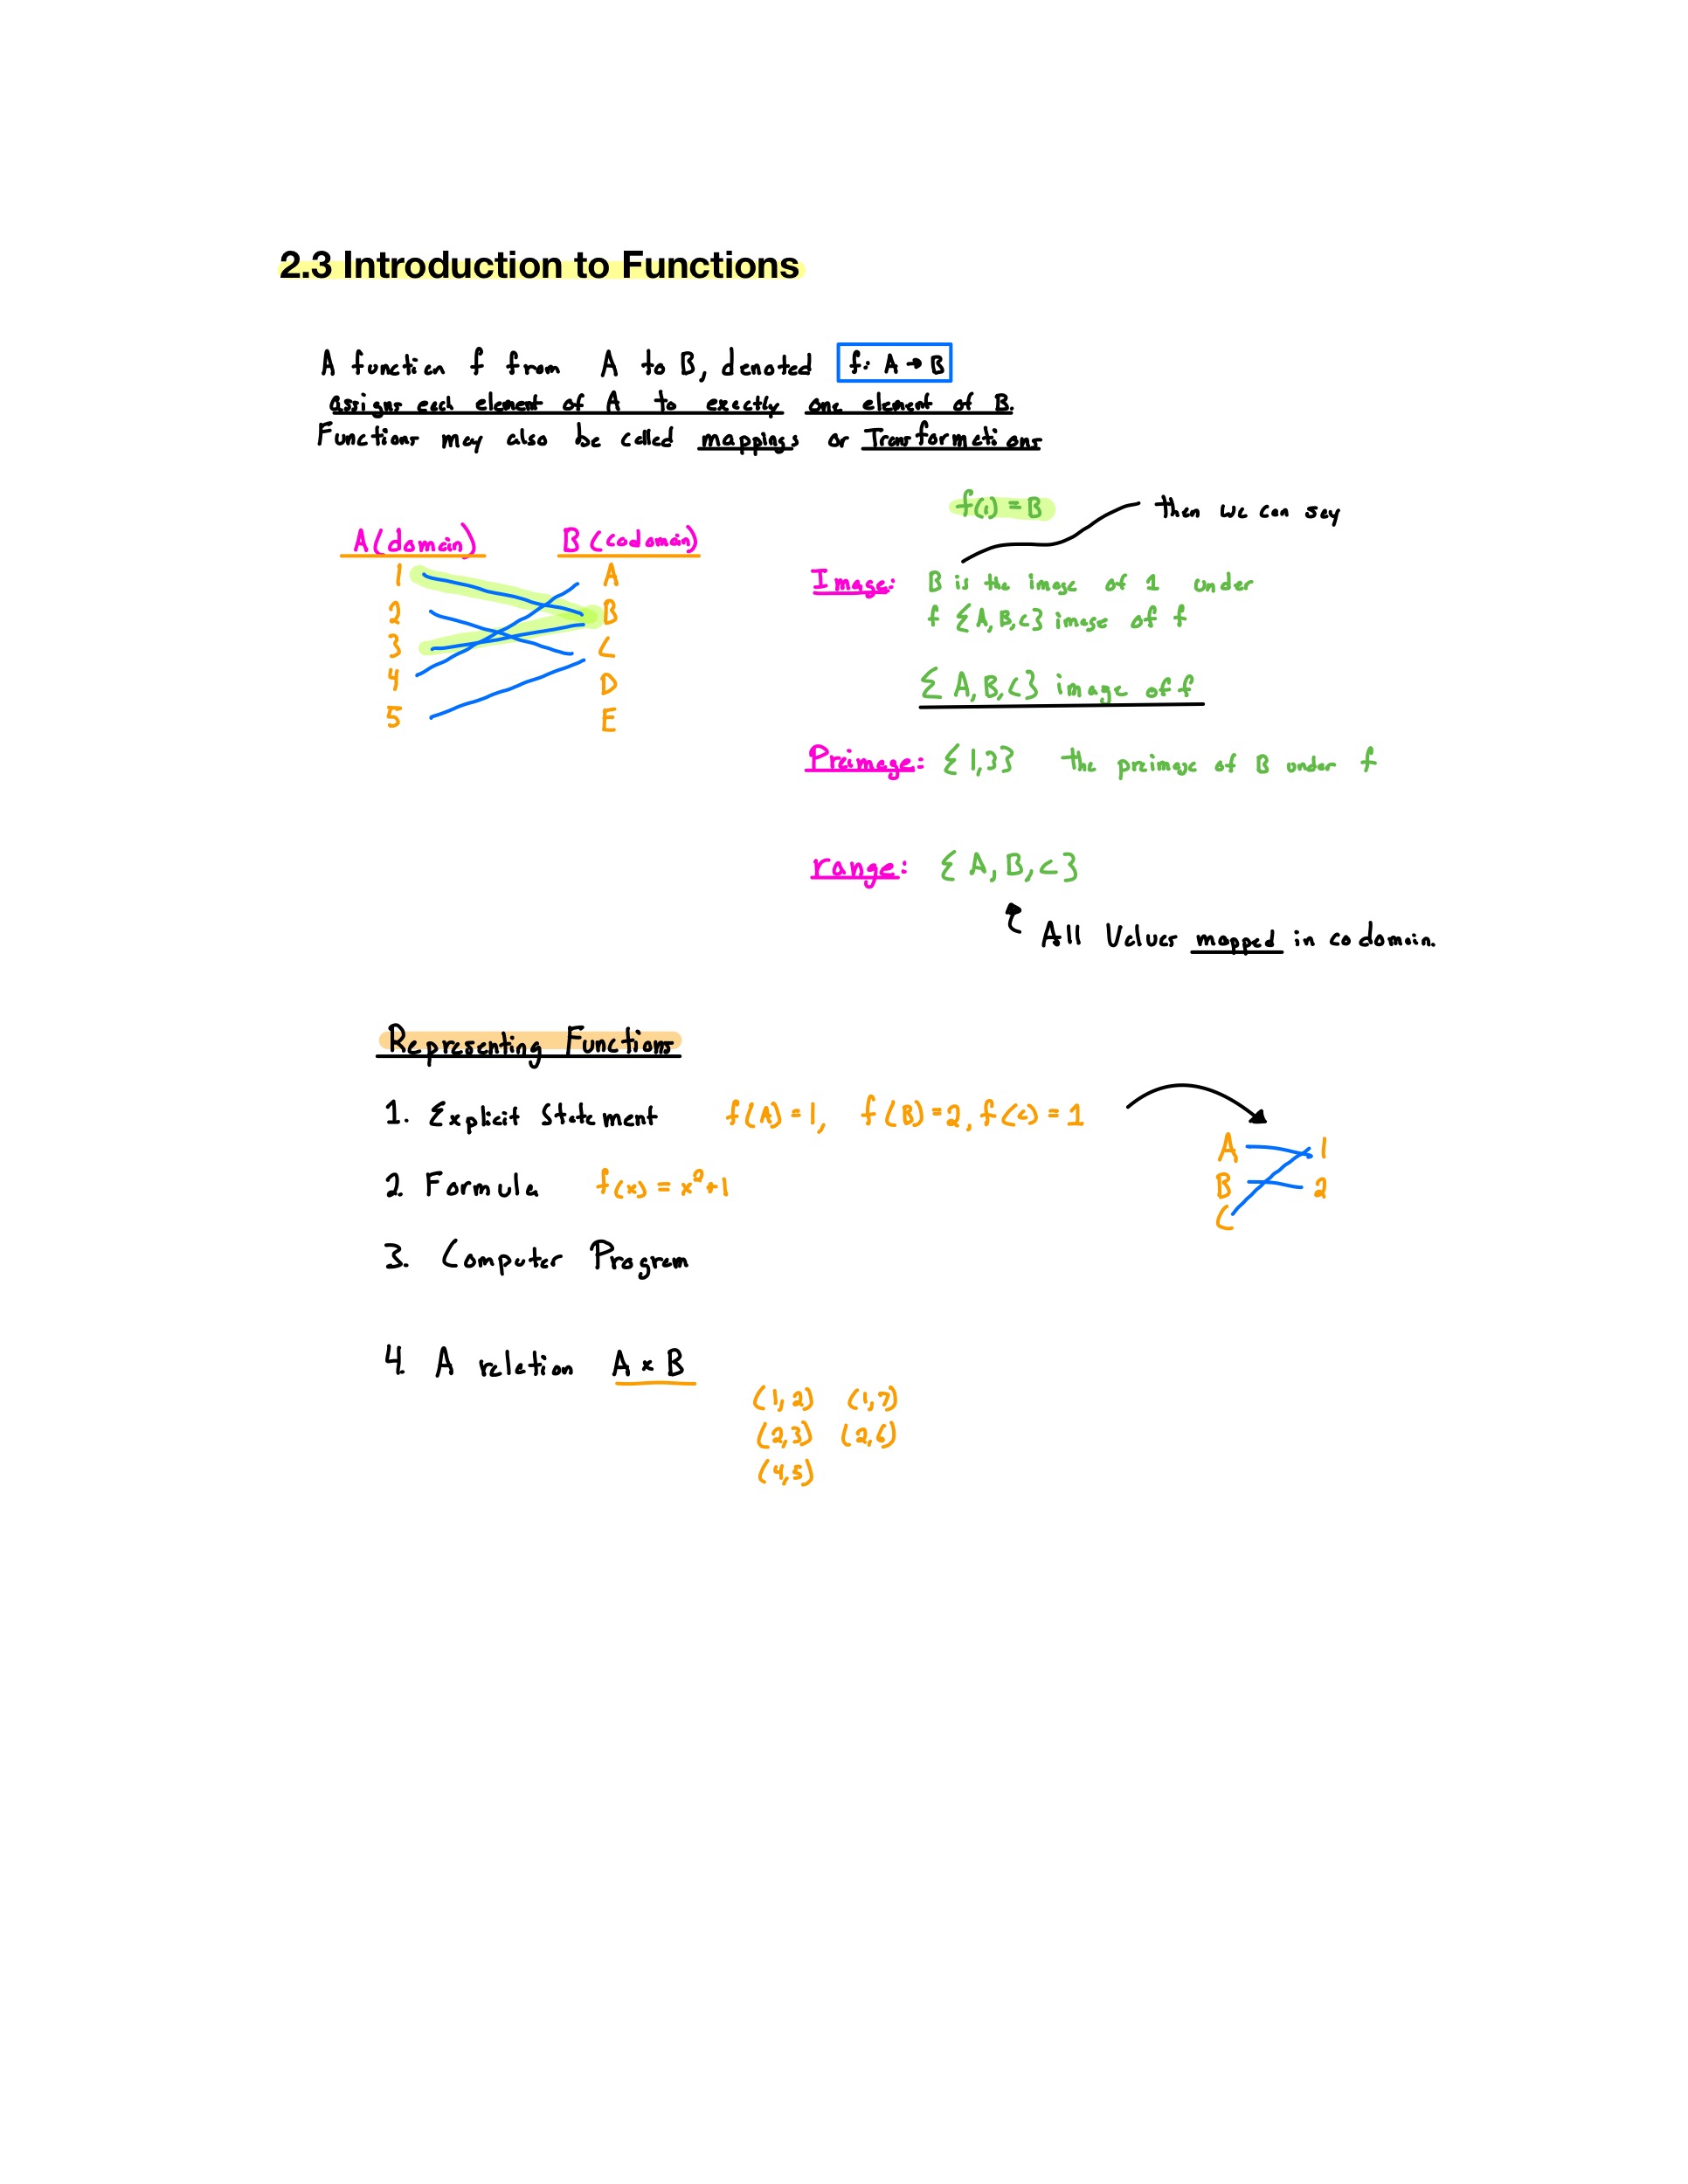 2.3 Introduction to Functions
A function f from A to B, denoted f: A → B
assigns each element of A to exactly one element of B.
Functions may also be called mappings or Transformations
f(1) = B then we can say
A (domain) B (codomain)
1 A
2 B
3 C
4 D
5 E
Image: B is the image of 1 under
f {A,B,C} image of f
{A,B,C} image of f
Preimage: {1,3} the preimage of B under f
range: {A,B,C}
All Values mapped in codomain.
Representing Functions
1. Explicit Statement f(A) = 1, f(B) = 2, f(C) = 1
A 1
B 2
C
2. Formula f(x) = x²+1
3. Computer Program
4. A relation A × B
(1,2) (1,7)
(2,3) (2,6)
(4,5)